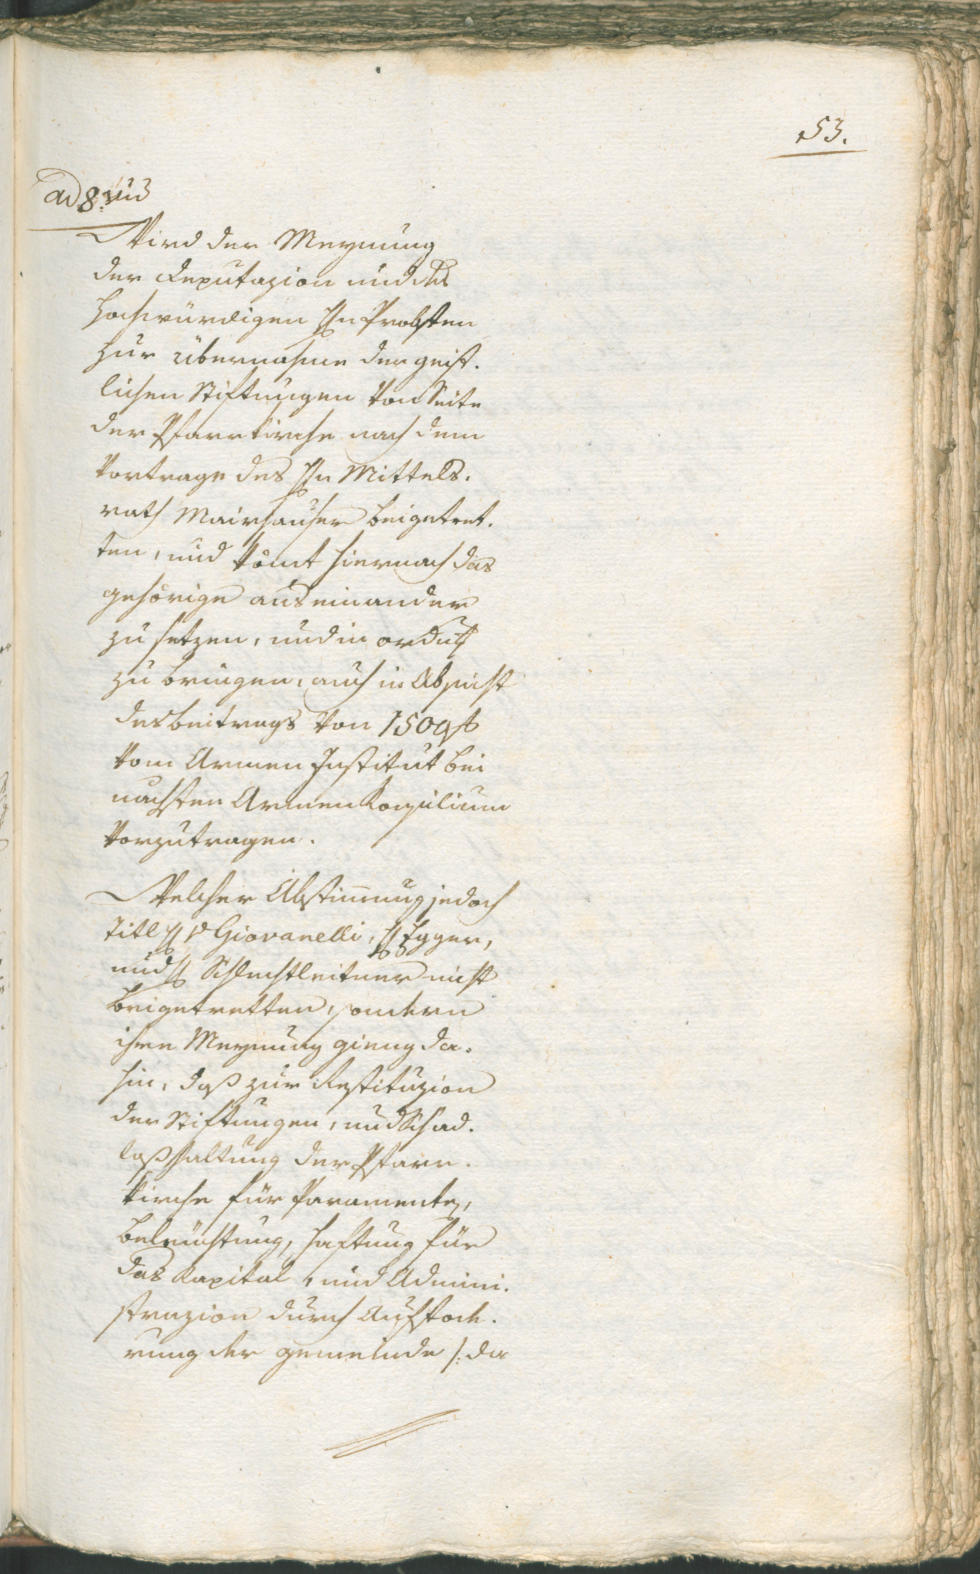 53.
ad 8vũ
Wird der Meynung
der Deputazion und des
Hochwürdigen Hn Probsten
zur Übernahme der geist.
lichen Stiftungen von Seite
der Pfarrkirche nach dem
Vortrage des Hn Mittels.
rath Mairhauser beigetret.
ten, und kömt hiernach das
gehörige auseinander
zu setzen, und in ordnūg
zu bringen, auch in Absicht
des beitrags von 1500 f
vom Armen Institut bei
nächsten Armen Konsilium
vorzutragen.
Welcher Abstimmung jedoch
Titl H v Giovanelli, H Egger,
und H Schlechtleitner nicht
beigetretten, sondern
ihre Meynung gieng da.
hin, daß zur Restituzion
der Stiftungen, und Schad.
loßhaltung der Pfarr.
kirche für Paramente,
beleuchtung, Haftung für
das Kapital, und Admini.
strazion durch Aufford.
rung der gemeinde /: da